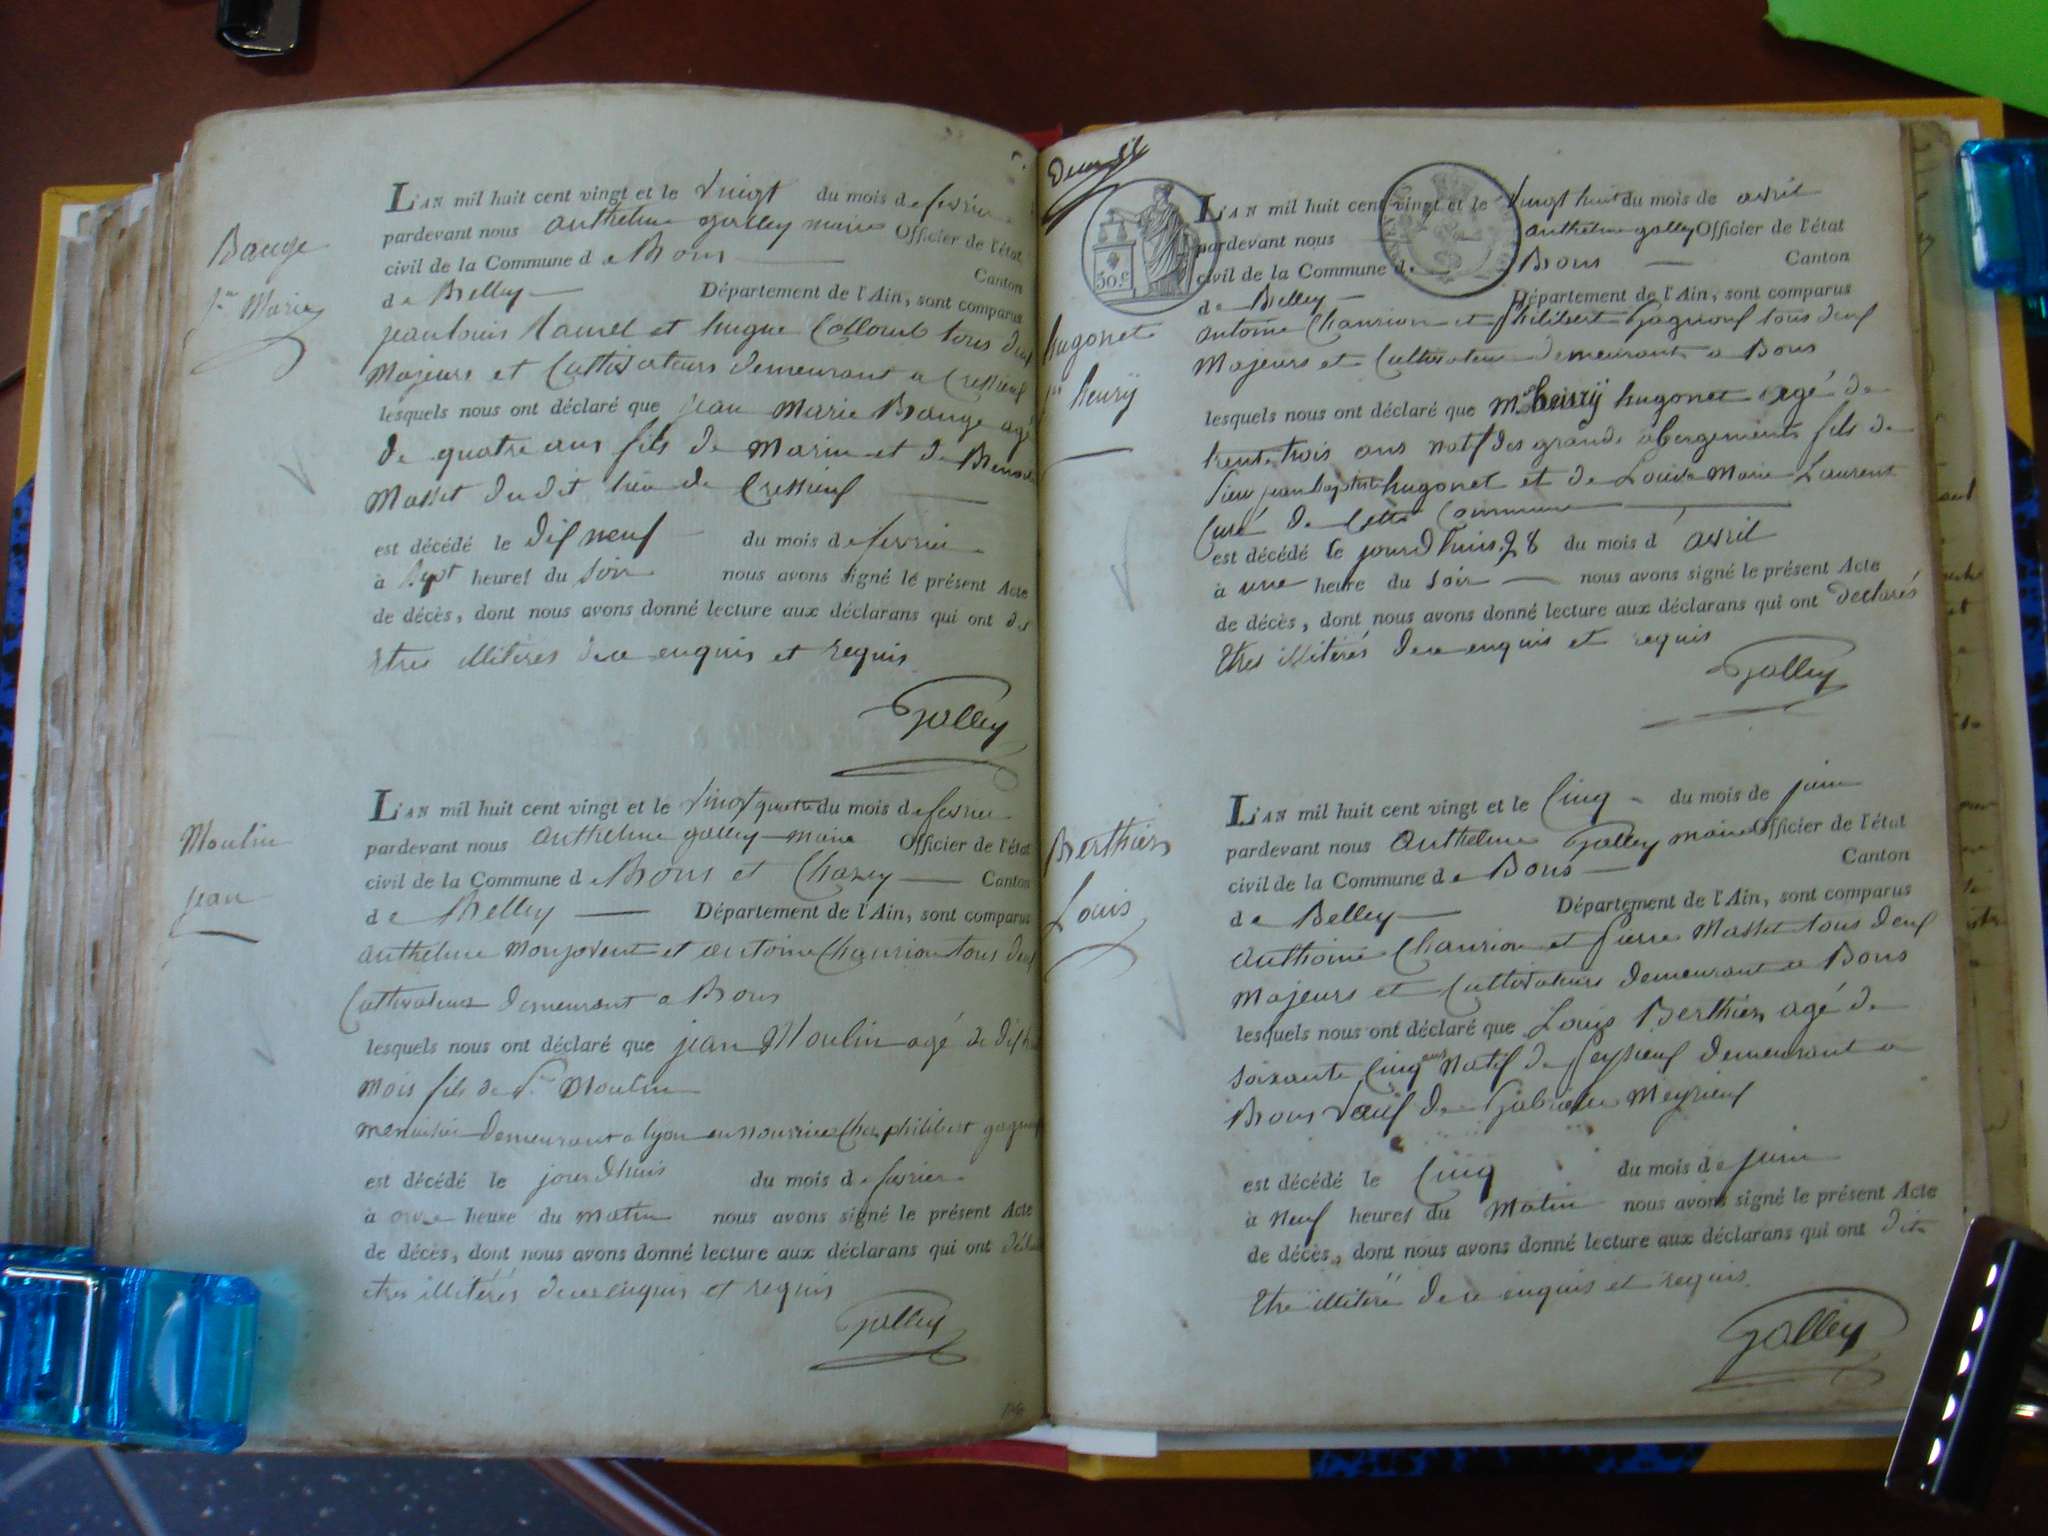 Bauge
Jn Marie
L'AN mil huit cent vingt et le vingt du mois de fevrier
pardevant nous anthelme galley maire Officier de l'état
civil de la Commune de Bons Canton
de Belley Département de l'Ain, sont comparus
jean louis et hugue Collomb tous deux
Majeurs et Cultivateurs demeurant a Cressieux
lesquels nous ont déclaré que jean Marie Bauge agé
de quatre ans fils de Marin et de
Masset du dit lieu de Cressieux
est décédé le dix neuf du mois de fevrier
à sept heures du soir nous avons signé le présent Acte
de décès, dont nous avons donné lecture aux déclarans qui ont
etres illiterés de ce enquis et requis
Galley
Moulin
jean
L'AN mil huit cent vingt et le vingt quatre du mois de fevrier
pardevant nous anthelme galley maire Officier de l'état
civil de la Commune de Bons et Chazey Canton
de Belley Département de l'Ain, sont comparus
anthelme Monjovent et antoine Chaurion tous deux
Cultivateurs demeurant a Bons
lesquels nous ont déclaré que jean Moulin agé de
mois fils de Moulin
menuisier demeurant a lyon en nourrice Chez philibert
est décédé le jourdhuis du mois de fevrier
à onze heure du matin nous avons signé le présent Acte
de décès, dont nous avons donné lecture aux déclarans qui ont
etres illiterés de ce enquis et requis
Galley
30.c
hugonet
henrÿ
L'AN mil huit cent vingt et le vingt huit du mois de avril
pardevant nous anthelme galley Officier de l'état
civil de la Commune de Bons Canton
de Belley Département de l'Ain, sont comparus
antoine Chaurion et philibert tous deux
Majeurs et Cultivateurs demeurant a Bons
lesquels nous ont déclaré que Mr henrÿ hugonet agé de
trente trois ans natif des grands abergements fils de
sieur jean baptiste hugonet et de Louise Marie Laurent
Curé de Cette Commune
est décédé le jourdhuis 28 du mois d avril
à une heure du soir nous avons signé le présent Acte
de décès, dont nous avons donné lecture aux déclarans qui ont declarés
Etres illiterés de ce enquis et requis
Galley
Berthier
Louis
L'AN mil huit cent vingt et le Cinq du mois de juin
pardevant nous anthelme Galley maire Officier de l'état
civil de la Commune de Bons Canton
de Belley Département de l'Ain, sont comparus
anthoine Chaurion et pierre Masset tous deux
Majeurs et Cultivateurs demeurant a Bons
lesquels nous ont déclaré que Louis Berthier agé de
soixante Cinq ans natif de demeurant a
Bons veuf de Meyrieux
est décédé le Cinq du mois de juin
à neuf heures du Matin nous avons signé le présent Acte
de décès, dont nous avons donné lecture aux déclarans qui ont dit
Etre illiteré de ce enquis et requis
Galley